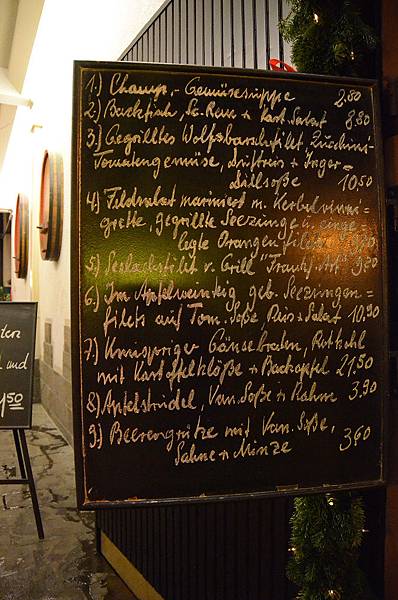 1.) Champ.- Gemüsesuppe 2,80
2.) Backfisch, Sc. Rem + Kart. Salat 8,80
3.) Gegrilltes Wolfsbarschfilet, Zucchini-
Tomatengemüse, Duftreis + Inger=
Dillsoße 10,50
4.) Feldsalat mariniert m. Kerbelvinai=
grette, gegrillte Seezunge u. einge=
legte Orangenfilets
5.) Seelachsfilet v. Grill "Frankf. Art" 9,80
6.) Im Apfelweinteig geb. Seezungen=
filets auf Tom. Soße, Reis + Salat 10,90
7.) Knuspriger Gänsebraten, Rotkohl
mit Kartoffelklöße + Backapfel 21,50
8.) Apfelstrudel, Van. Soße + Rahm 3,90
9.) Beerengrütze mit Van. Soße,
Sahne + Minze 3,60
ten
d und
,50